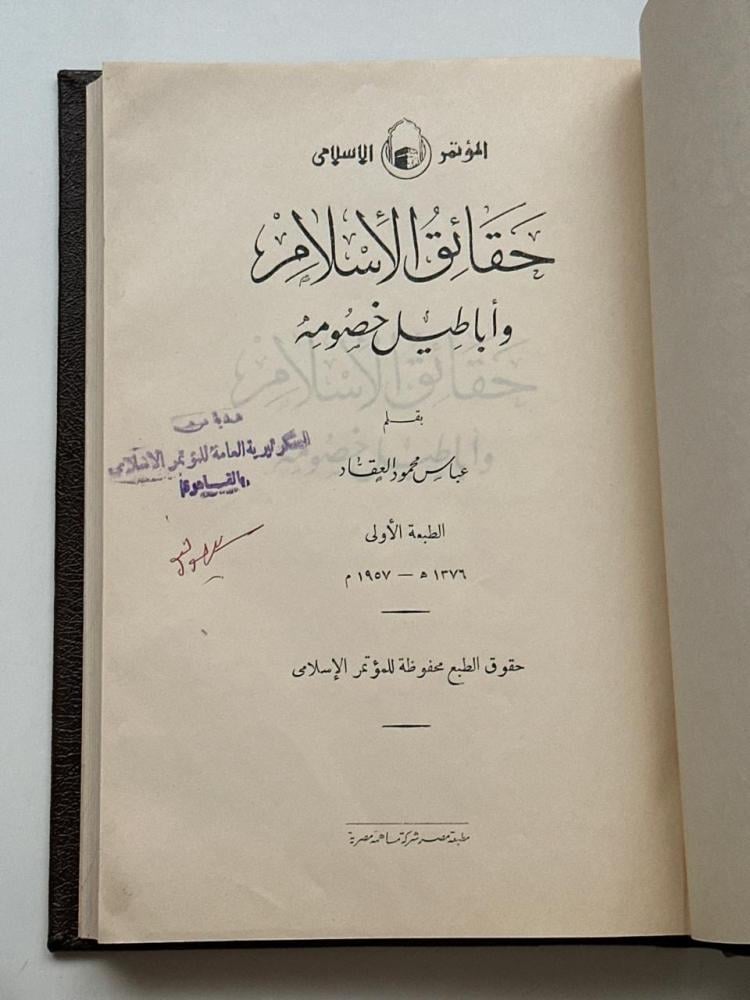 المؤتمر الإسلامى
حقائق الأسلام
وأباطيل خصومه
بقلم
عباس محمود العقاد
هدية من
السكرتيرية العامة للمؤتمر الإسلامى
بالقاهرة
الطبعة الأولى
١٣٧٦ ه — ١٩٥٧ م
حقوق الطبع محفوظة للمؤتمر الإسلامى
مطبعة مصر شركة مساهمة مصرية